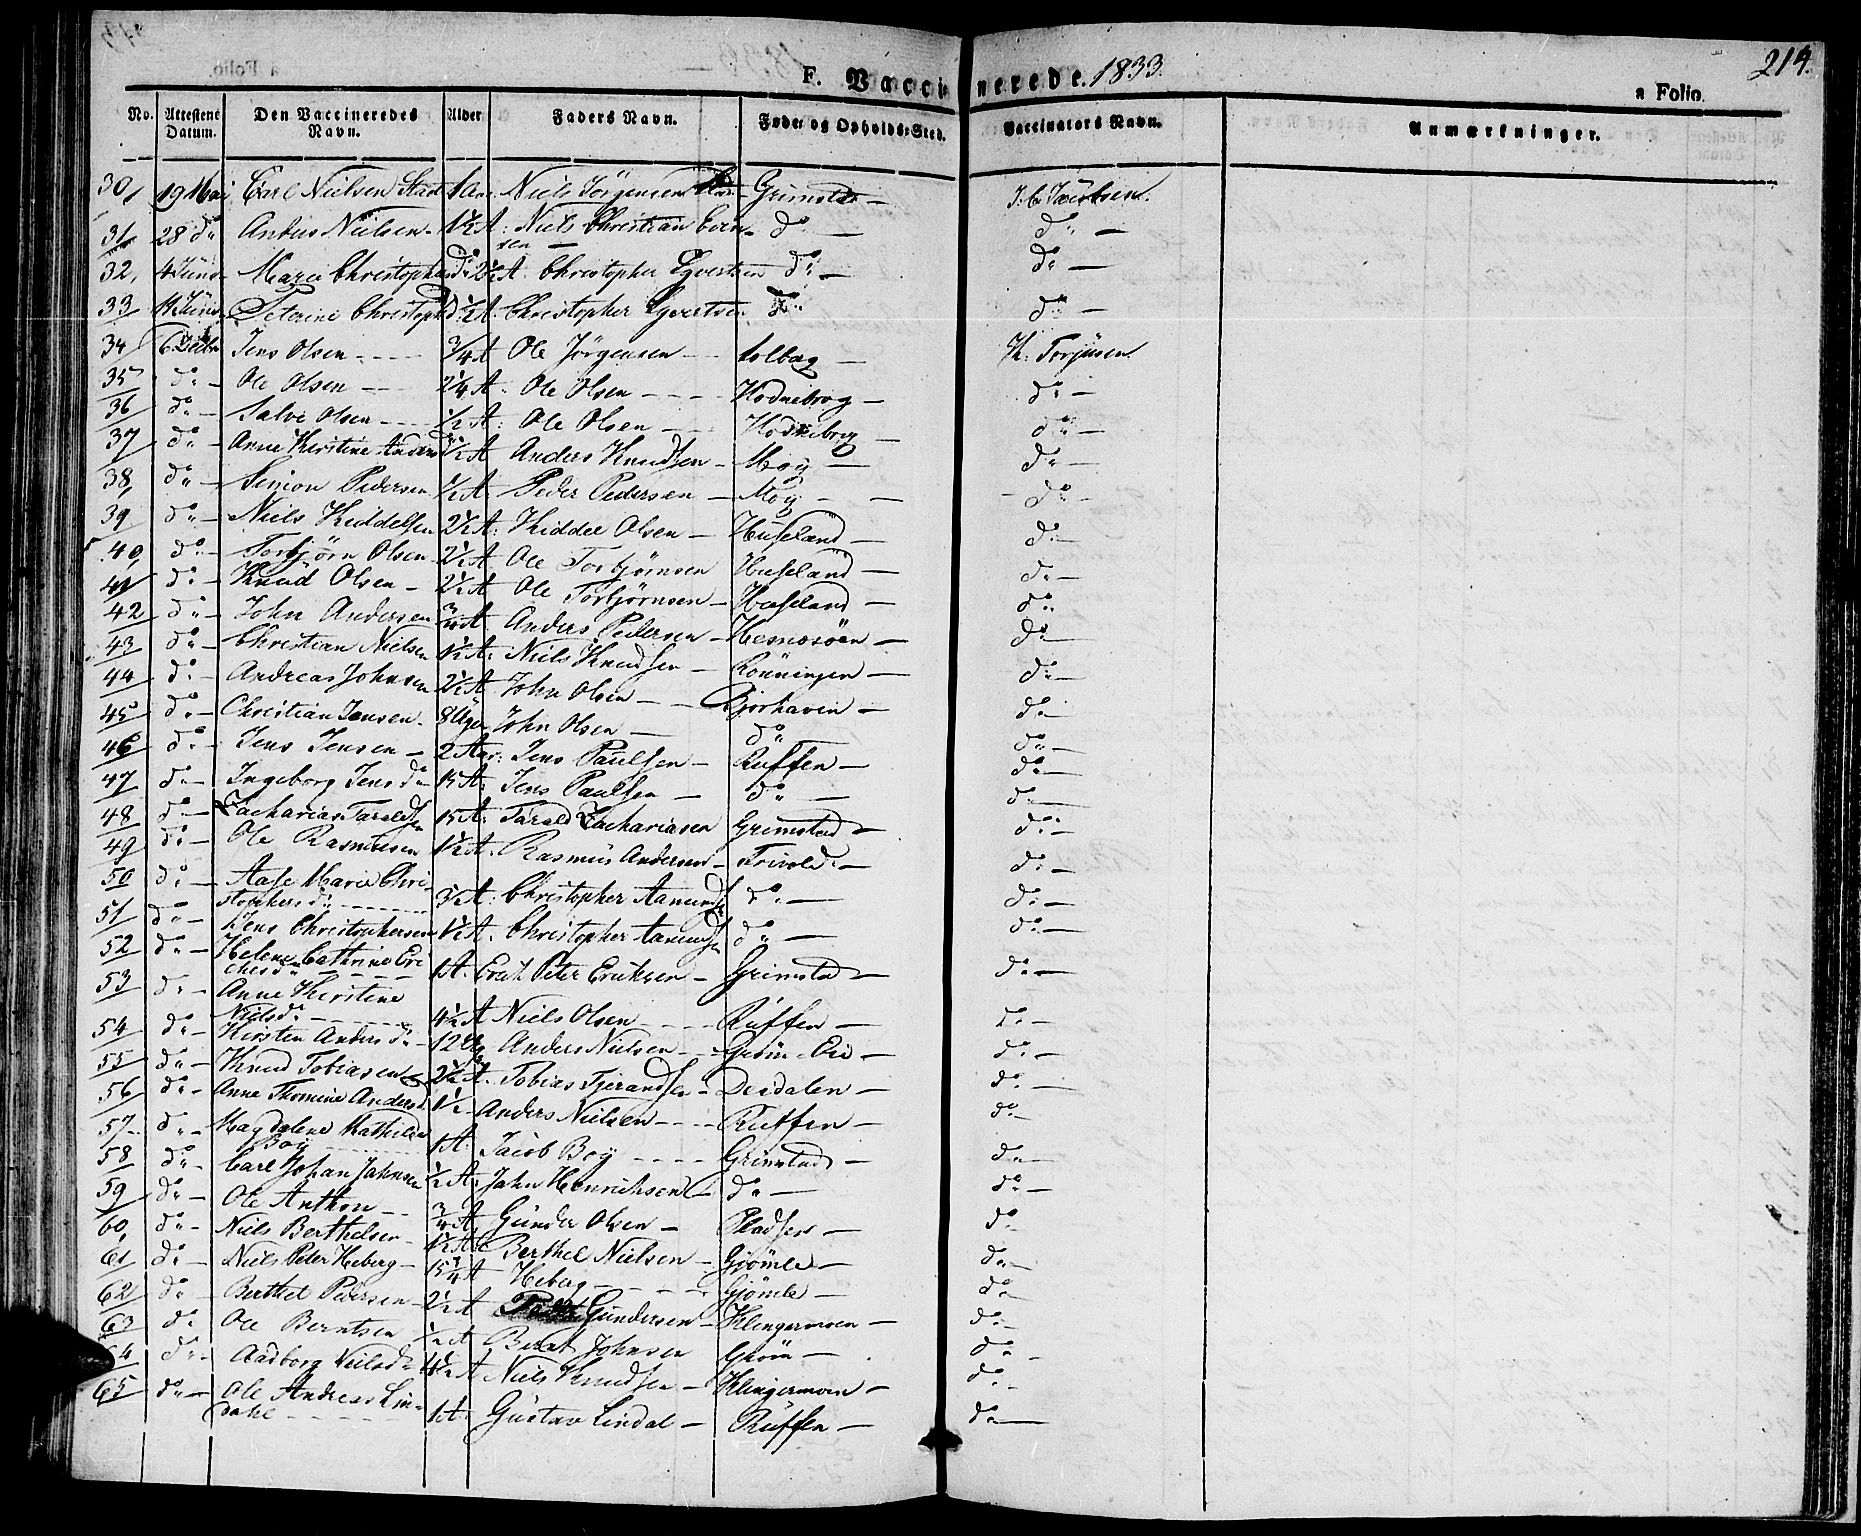 F. Vaccinerede. 1833. 214.
a Folio.
No. Attestens Datum. Den Vaccineredes Navn. Alder Faders Navn. Føde- og Opholds-Sted. Vaccinators Navn. Anmærkninger.
30, 19 Mai Carl Nielsen 1 Aar Niels Jörgensen Grimstad —
31 28 d° Nielsen 1½ A: Niels Christian Even- d° — d° —
sen —
32, 4 Juni Maria Christophersd° 2½ A. Christopher d° — d° —
33 14 Juni Peterine Christophd ½ A. Christopher d° d° —
34 6 Jens Olsen ¾ A Ole Jörgensen — K: Torjusen
35 d° — Ole Olsen — 2¼ A: Ole Olsen Hodnebrog — d° —
36 d° — Salve Olsen ½ A: Ole Olsen — Hodnebrog — d° —
37 d° — Anne Kirstine ½ A Anders Knudsen — Moy — d° —
38, d° — Simon Pedersen ½ A Peder Pedersen — Moy — d° —
39 d° — Niels Kiddelsen 2½ A: Kiddel Olsen — Huseland — d° —
40, d° — Torbjörn Olsen 2½ A Ole Torbjörnsen Huseland — d° —
41 d° — Knud Olsen — 2½ A Ole Torbjörnsen — Huseland — d°
42 d° — John Andersen ¾ A Anders Pedersen — Hesnesöen — d° —
43 d° — Christian Nielsen 1½ A: Niels Knudsen — Rönningen — d° —
44 d° — Andreas Johnsen 2½ A John Olsen — Bjorhaven — d° —
45 d° — Christian Jensen 8 Uger John Olsen — d° d° —
46 d° — Jens Jensen — 2 Aar: Jens Paulsen — Ruffen — d° —
47 d° — Ingeborg Jensd° 15 A: Jens Paulsen — d° — d° —
48 d° — Zacharias Taraldsen 15 A: Tarald Zachariasen Grimstad — d° —
49 d° — Ole Rasmusen 1½ A: Rasmus Andersen — Frivold — d° —
50 d° — Aase Maria Chri-
stophersd° 3½ A: Christopher d° — d° —
51 d° — Jens Christophersen 1½ A. Christopher d° — d° —
52 d° — Helene Cathrine Eri-
chsd° 1 A. Erik Peter Eriksen — Grimstad — d° —
53 d° — Anne Kirstine
Nielsd° 4½ A Niels Olsen Ruffen — d° —
54 d° — Kirsten Andersd° — 12 Anders Nielsen — d° —
55 d° — Knud Tobiasen 2½ A. Tobias Tjerandsen — Dersdalen — d° —
56 d° — Anne Thomine Andersd 1½ Anders Nielsen Ruffen — d° —
57 d° — Magdalene Mathilde
Boy 1 A. Jacob Boy Grimstad — d° —
58 d° — Carl Johan Jahnsen ½ A. Jahn Henrichsen — d° — d° —
59 d° — Ole Anthon ¾ A Gunder Olsen — d° —
60, d° — Niels Berthelsen Berthel Nielsen — Gjömle — d° —
61 d° — Niels Peter Heberg — 15¾ A Heberg Gjömle — d° —
62 d° Berthel Pedersen 2½ A Gundersen — Klingermoen — d° —
63 d° Ole Berntsen ½ A Bernt Johnsen Gröm — d° —
64 d° — Aadborg Nielsd° 4½ A Niels Knudsen — Klingermoen — d° —
65 d° — Ole Andreas Lin-
dahl 1 A: Gustav Lindal — Ruffen — d° —